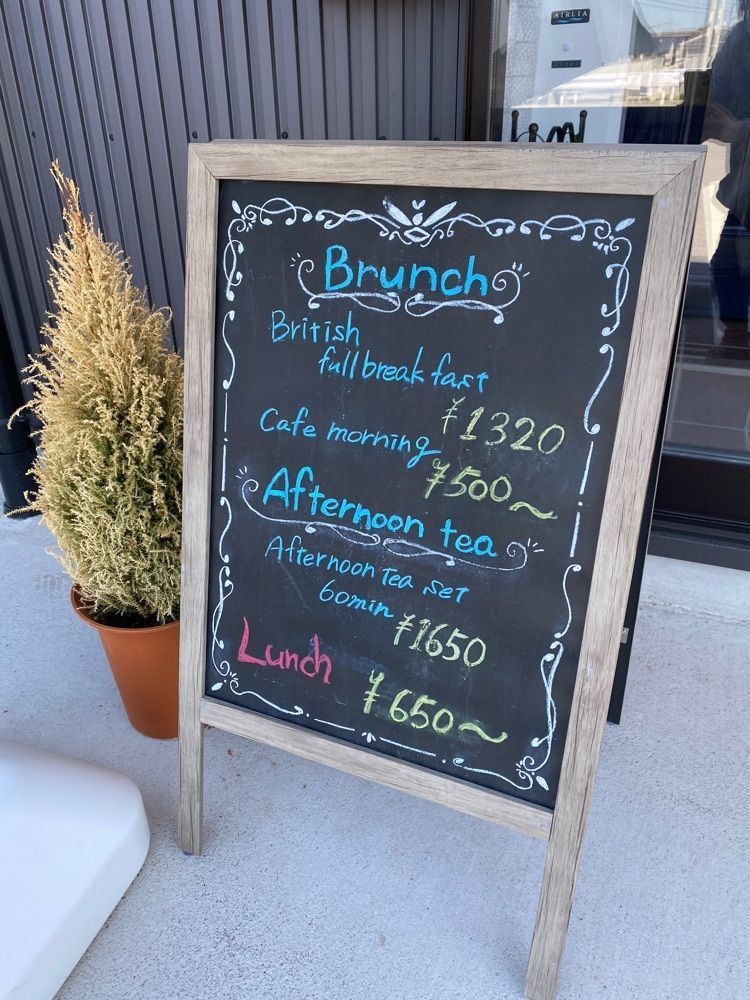 AIRLIA
Brunch
British
full breakfast
¥1320
Cafe morning
¥500～
Afternoon tea
Afternoon Tea set
60min
¥1650
Lunch
¥650～